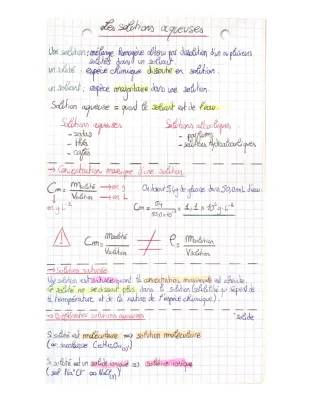 Les solutions aqueuses
Une solution : mélange homogène obtenu par dissolution d'un ou plusieurs
solutés dans un solvant.
un soluté : espèce chimique dissoute en solution.
un solvant : espèce majoritaire dans une solution.
Solution aqueuse = quand le solvant est de l'eau
Solutions aqueuses
- sodas
- thés
- cafés
Solutions alcooliques
- parfums
- solutions hydroalcooliques
→ Concentration massique d'une solution
Cm = m soluté → en g
V solution → en L
g.L⁻¹
Cm = m soluté / V solution ≠ ρ = m solution / V solution
→ Solution saturée
Une solution est saturée quand la concentration maximale est atteinte.
Le soluté ne se dissout plus dans la solution (solubilité qui dépend de
la température et de la nature de l'espèce chimique).
→ Différentes solutions aqueuses
Si soluté est moléculaire ⟹ solution moléculaire
Si soluté est un solide ionique ⟹ solution ionique